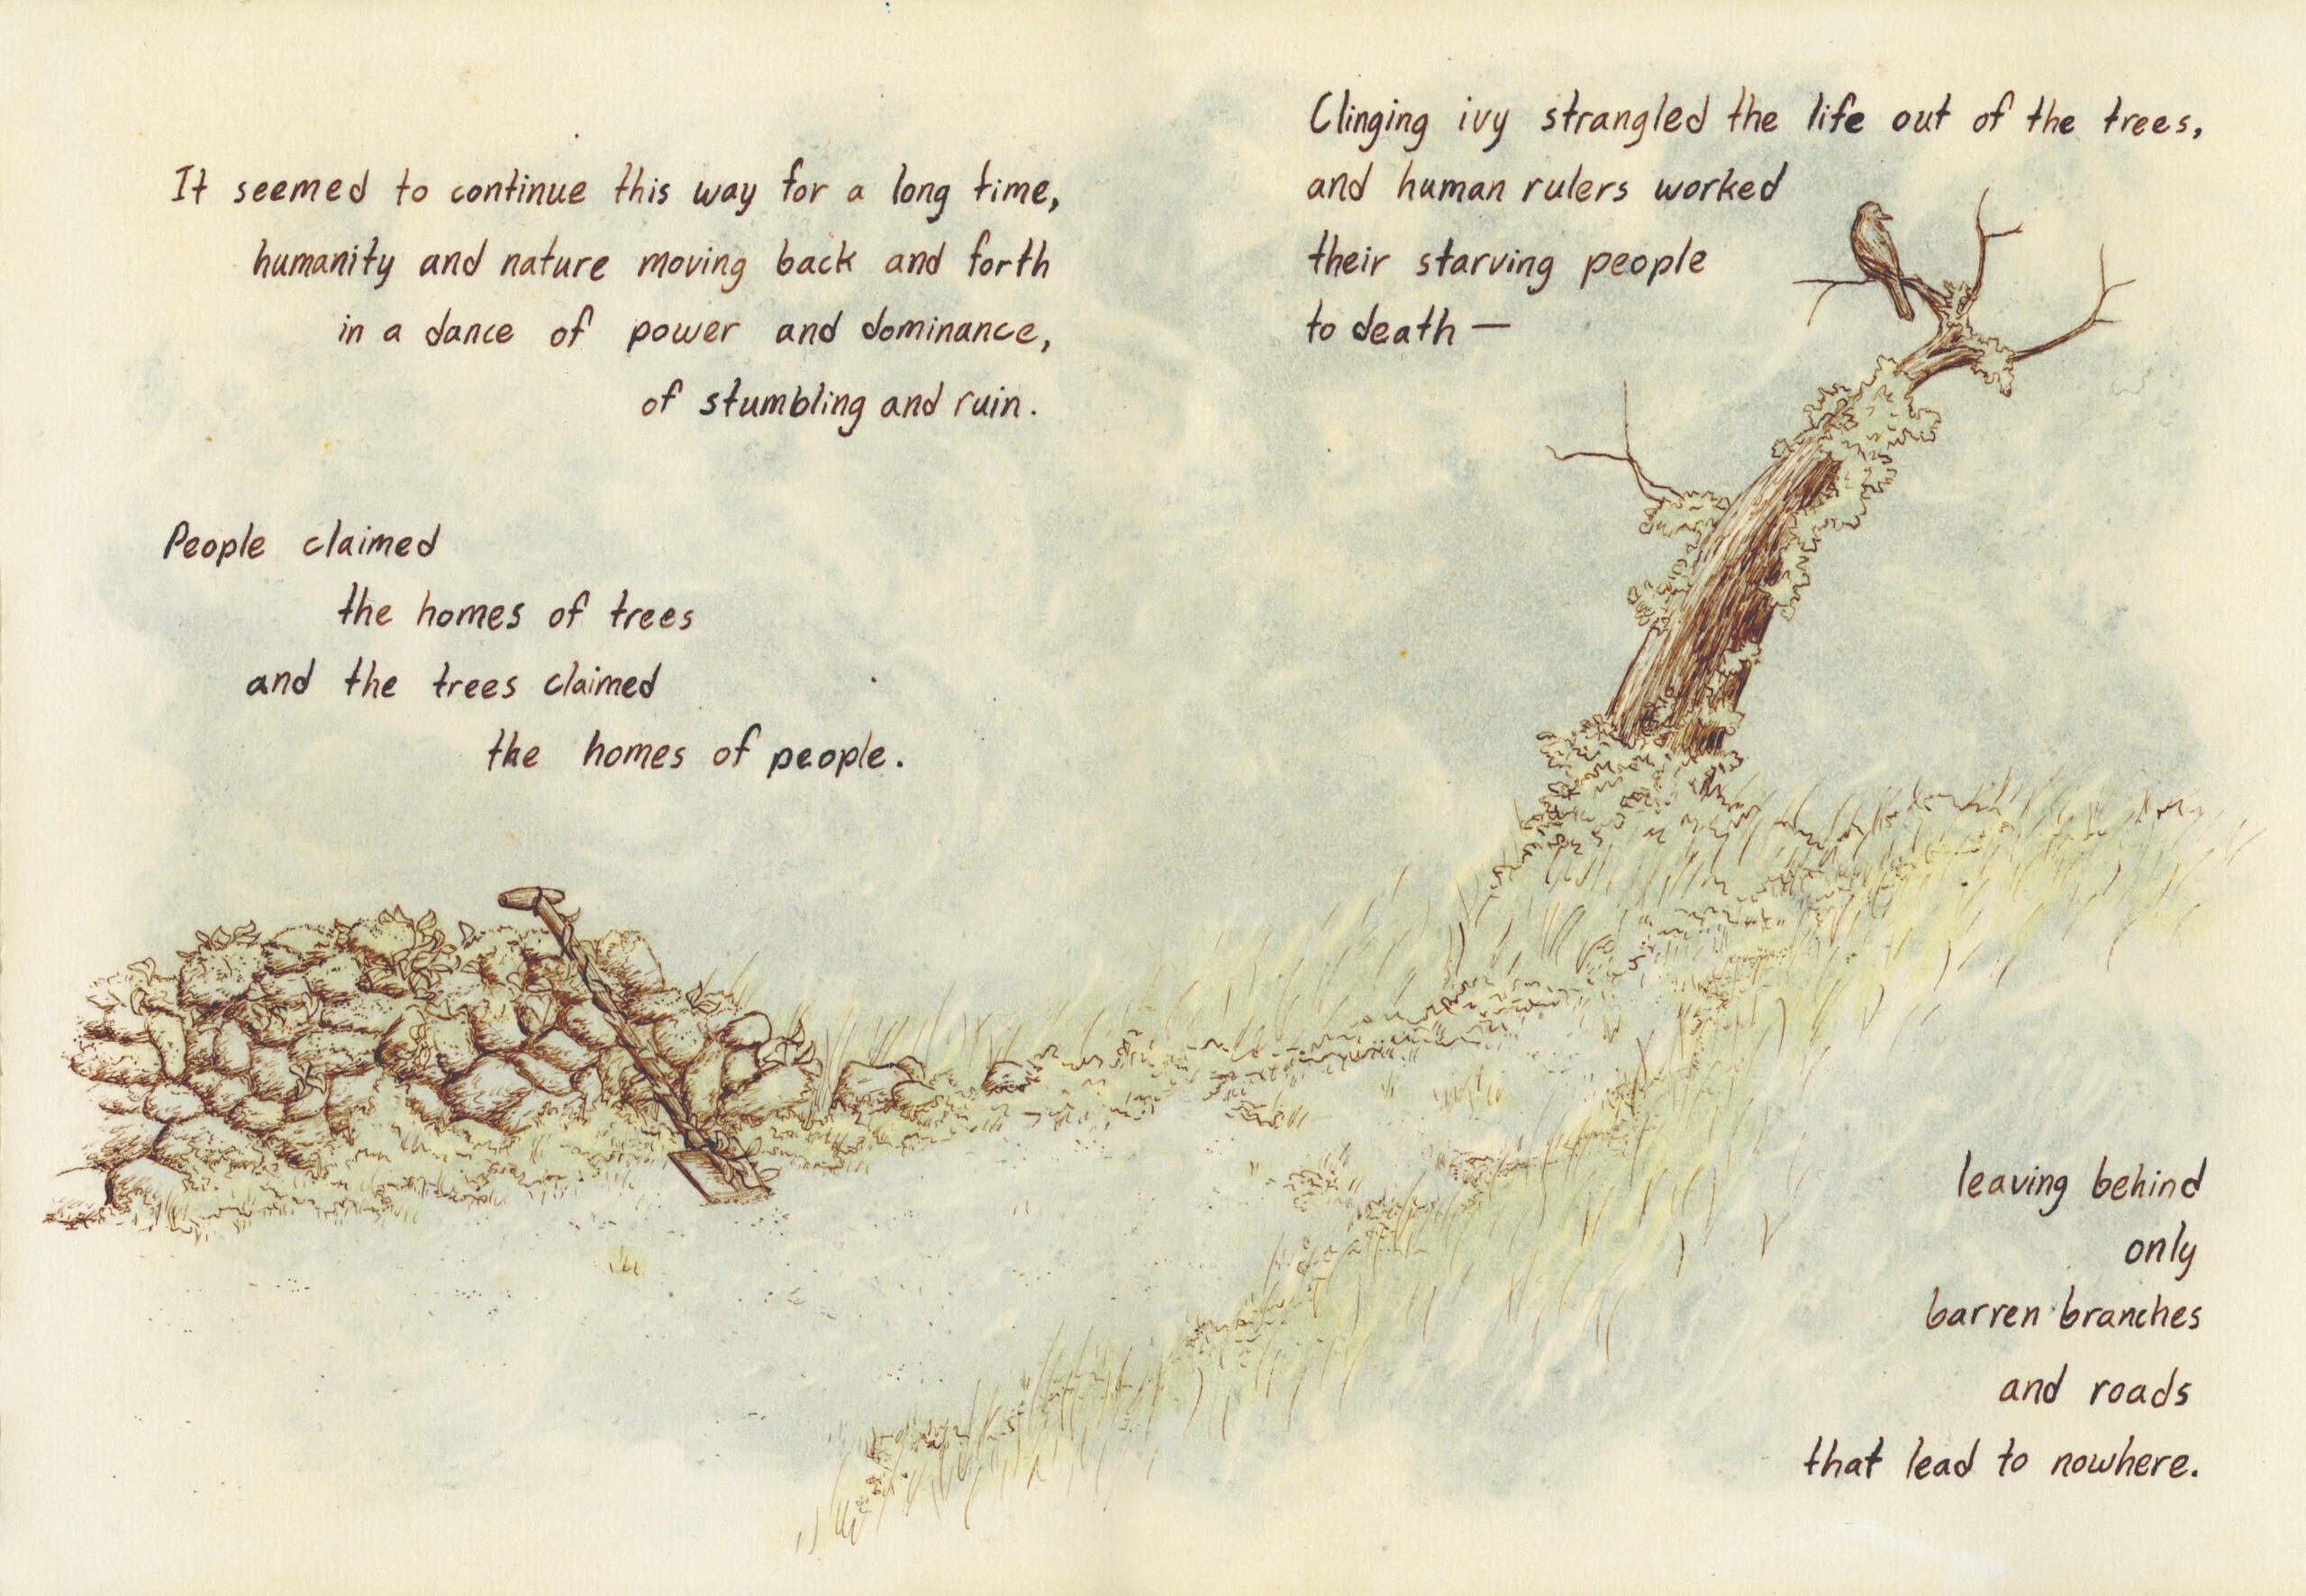 It seemed to continue this way for a long time,
humanity and nature moving back and forth
in a dance of power and dominance,
of stumbling and ruin.
People claimed
the homes of trees
and the trees claimed
the homes of people.
Clinging ivy strangled the life out of the trees,
and human rulers worked
their starving people
to death —
leaving behind
only
barren branches
and roads
that lead to nowhere.